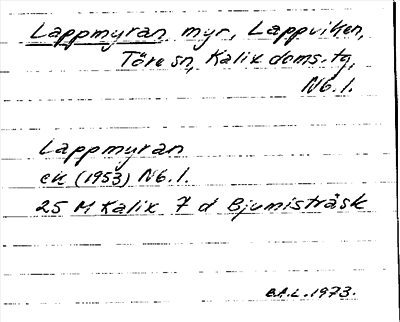 Lappmyran myr, Lappviken,
Töre sn, Kalix doms.tg,
Nb.l.
Lappmyran
ek (1953) Nb.l.
25 M Kalix 7 d Bjumisträsk
B.A.L. 1973.